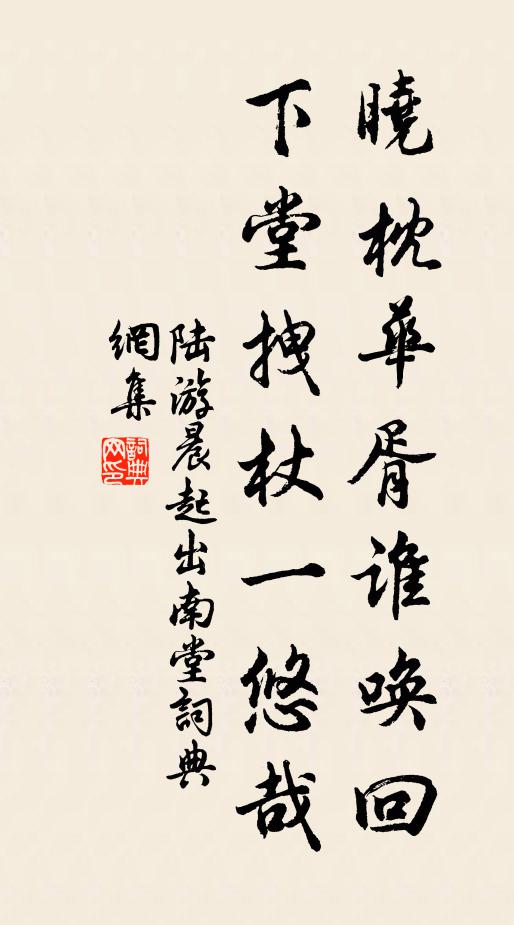 曉枕華胥誰喚回
下堂拽杖一悠哉
陆游晨起出南堂詞典
網集
詞典網印